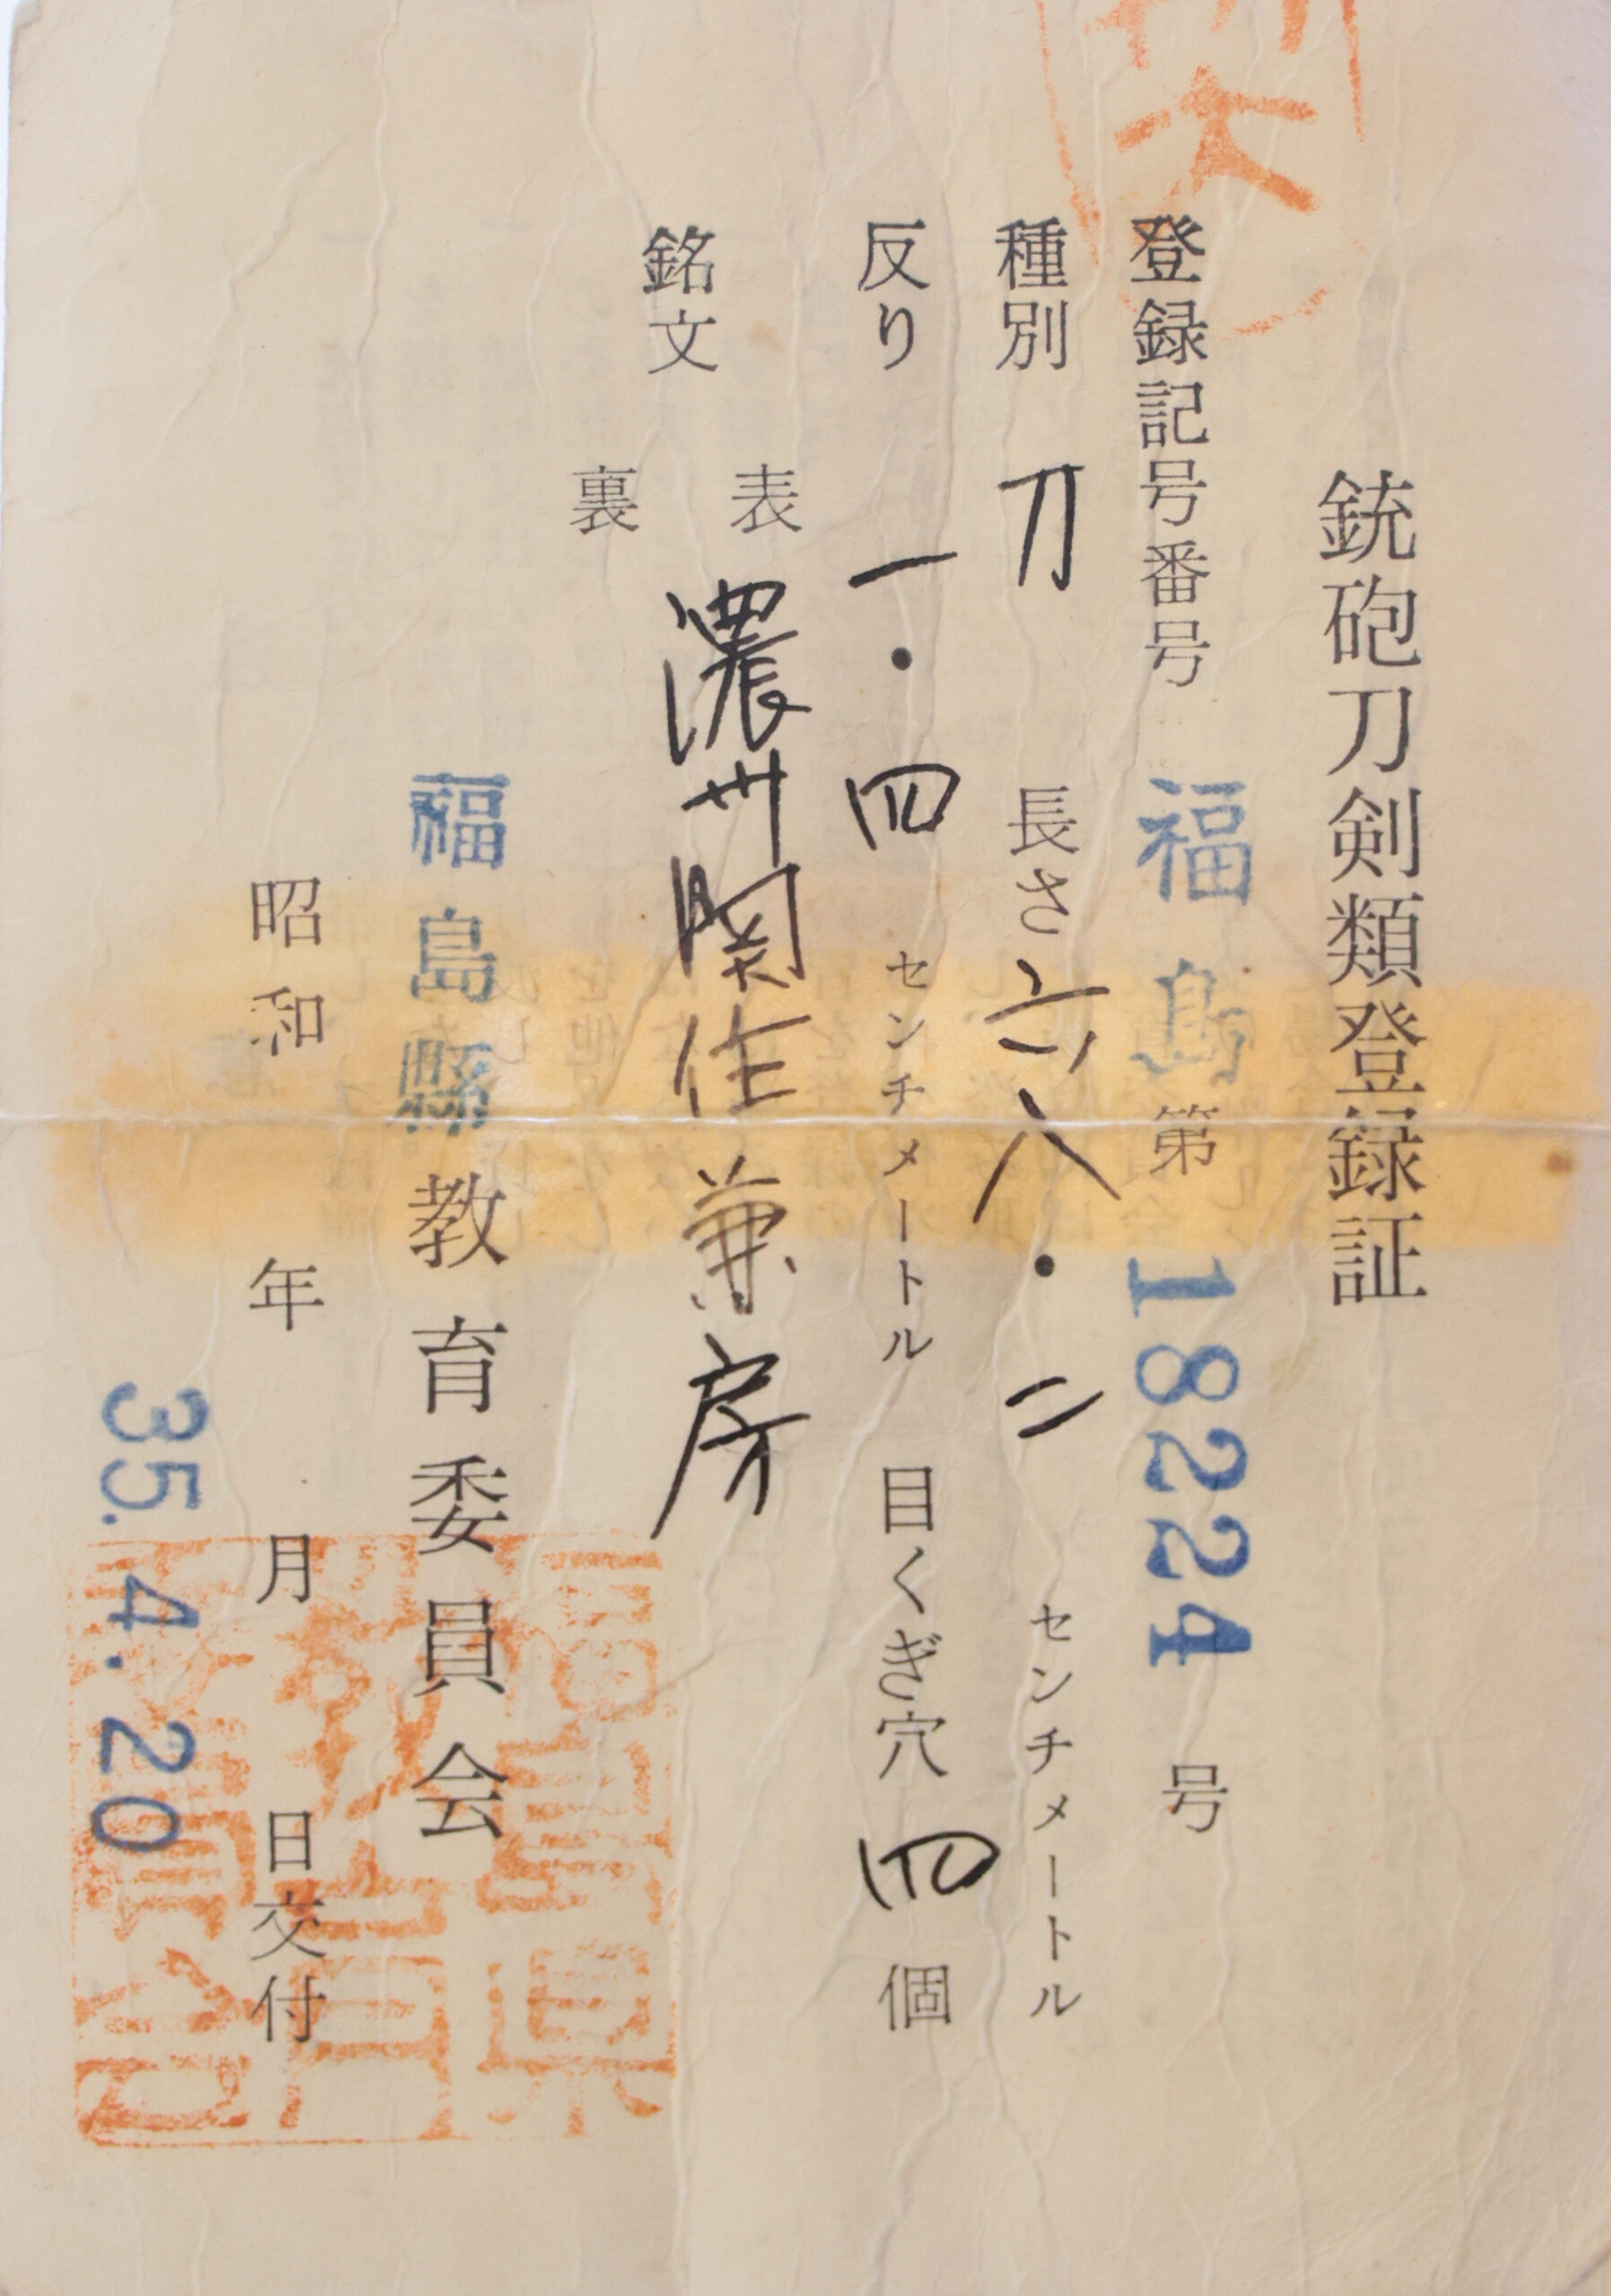 銃砲刀剣類登録証
登録記号番号 福島 第 18224 号
種別 刀 長さ 六八・二 センチメートル
反り 一・四 センチメートル 目くぎ穴 四 個
銘文 表 濃州関住兼房
裏
福島縣教育委員会
昭和 年 月 日交付
35.4.20